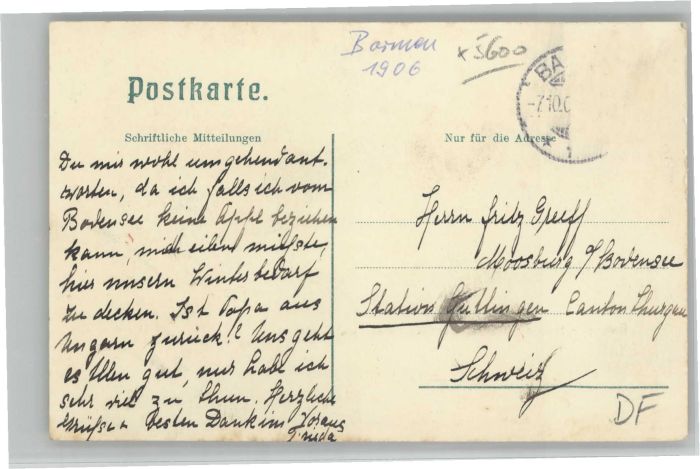 Barmen
1906
x 5600
BA
-7.10.0
Postkarte.
Schriftliche Mitteilungen
Nur für die Adresse
Du mir wohl umgehend ant-
worten, da ich falls ich vom
Bodensee keine Äpfel beziehen
kann, mich eilen müsste,
hier unsern Winterbedarf
zu decken. Ist Papa aus
Ungarn zurück? Uns geht
es Allen gut, nur habe ich
sehr viel zu thun. Herzliche
Grüße u besten Dank im Voraus
Frida
Herrn Fritz Greeff
Moosburg a/Bodensee
Station Güttingen Canton Thurgau
Schweiz
DF